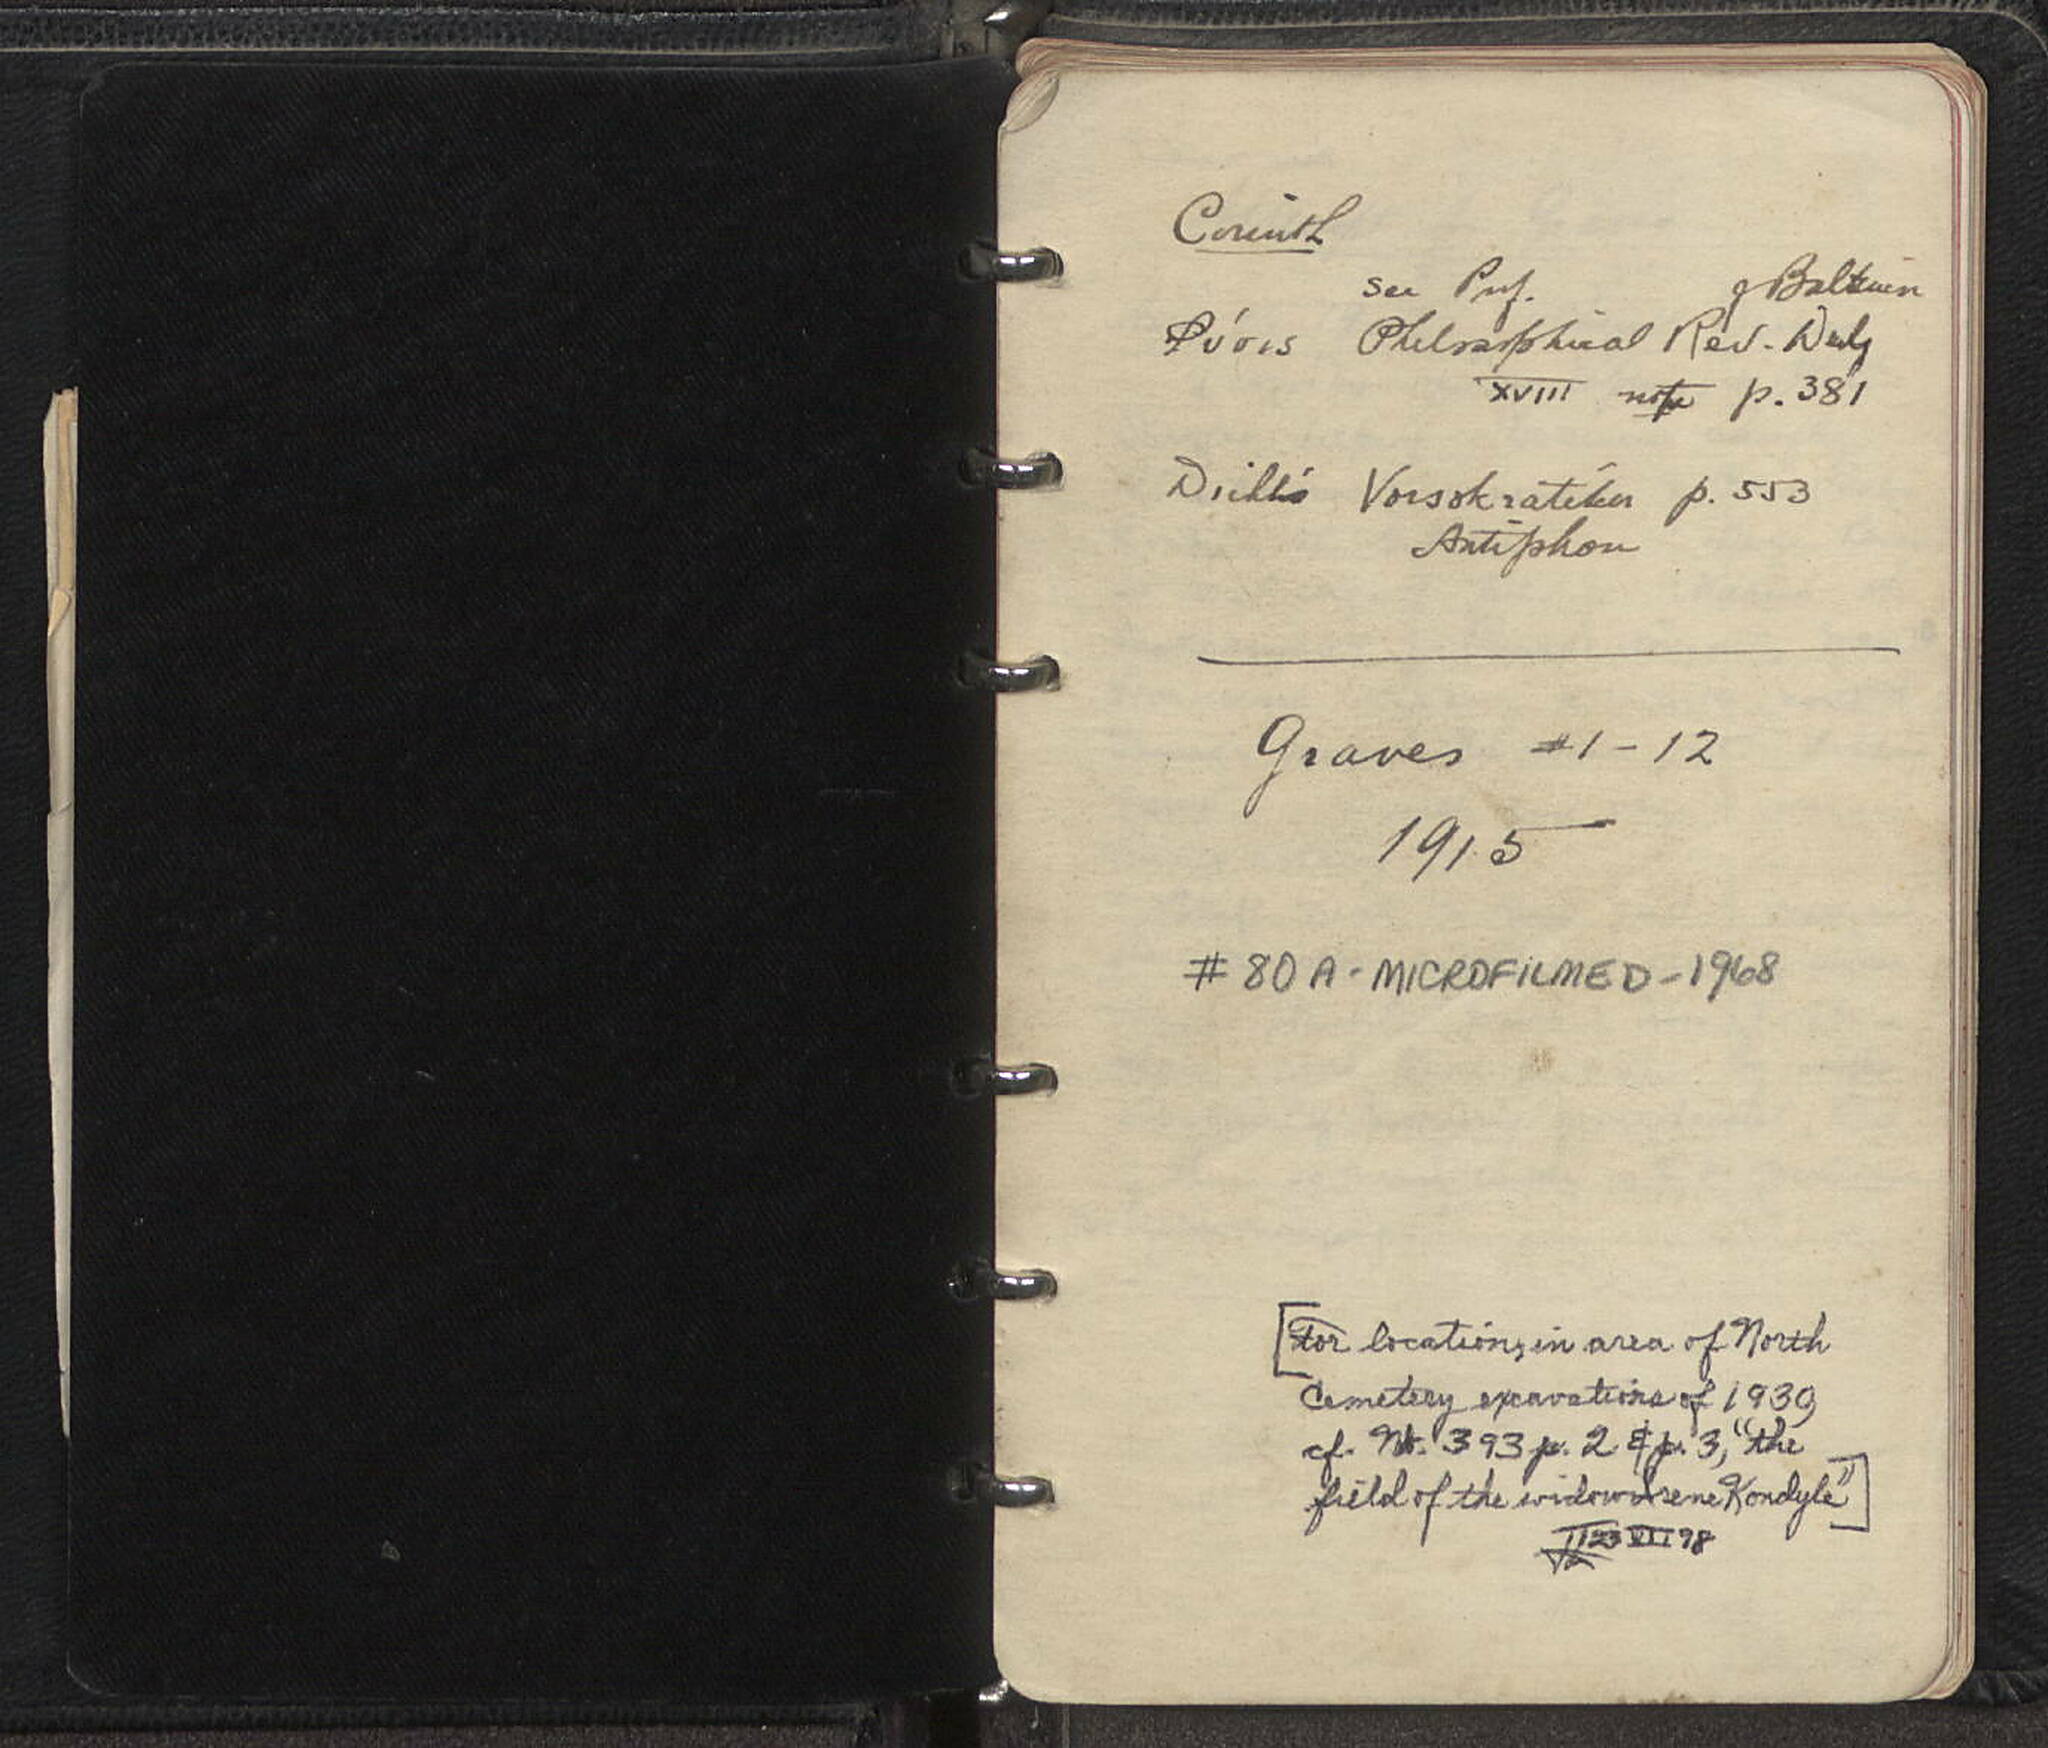 Corinth
see Prof.
φύσις Philosophical Rev.
XVIII note p. 381
Diels Vorsokratiker p. 553
Antiphon
Graves #1-12
1915
#80A-MICROFILMED-1968
[For location, in area of North
Cemetery excavations of 1930
cf. Nb. 393 p. 2 & p. 3, "the
field of the widow Irene Kondyle"]